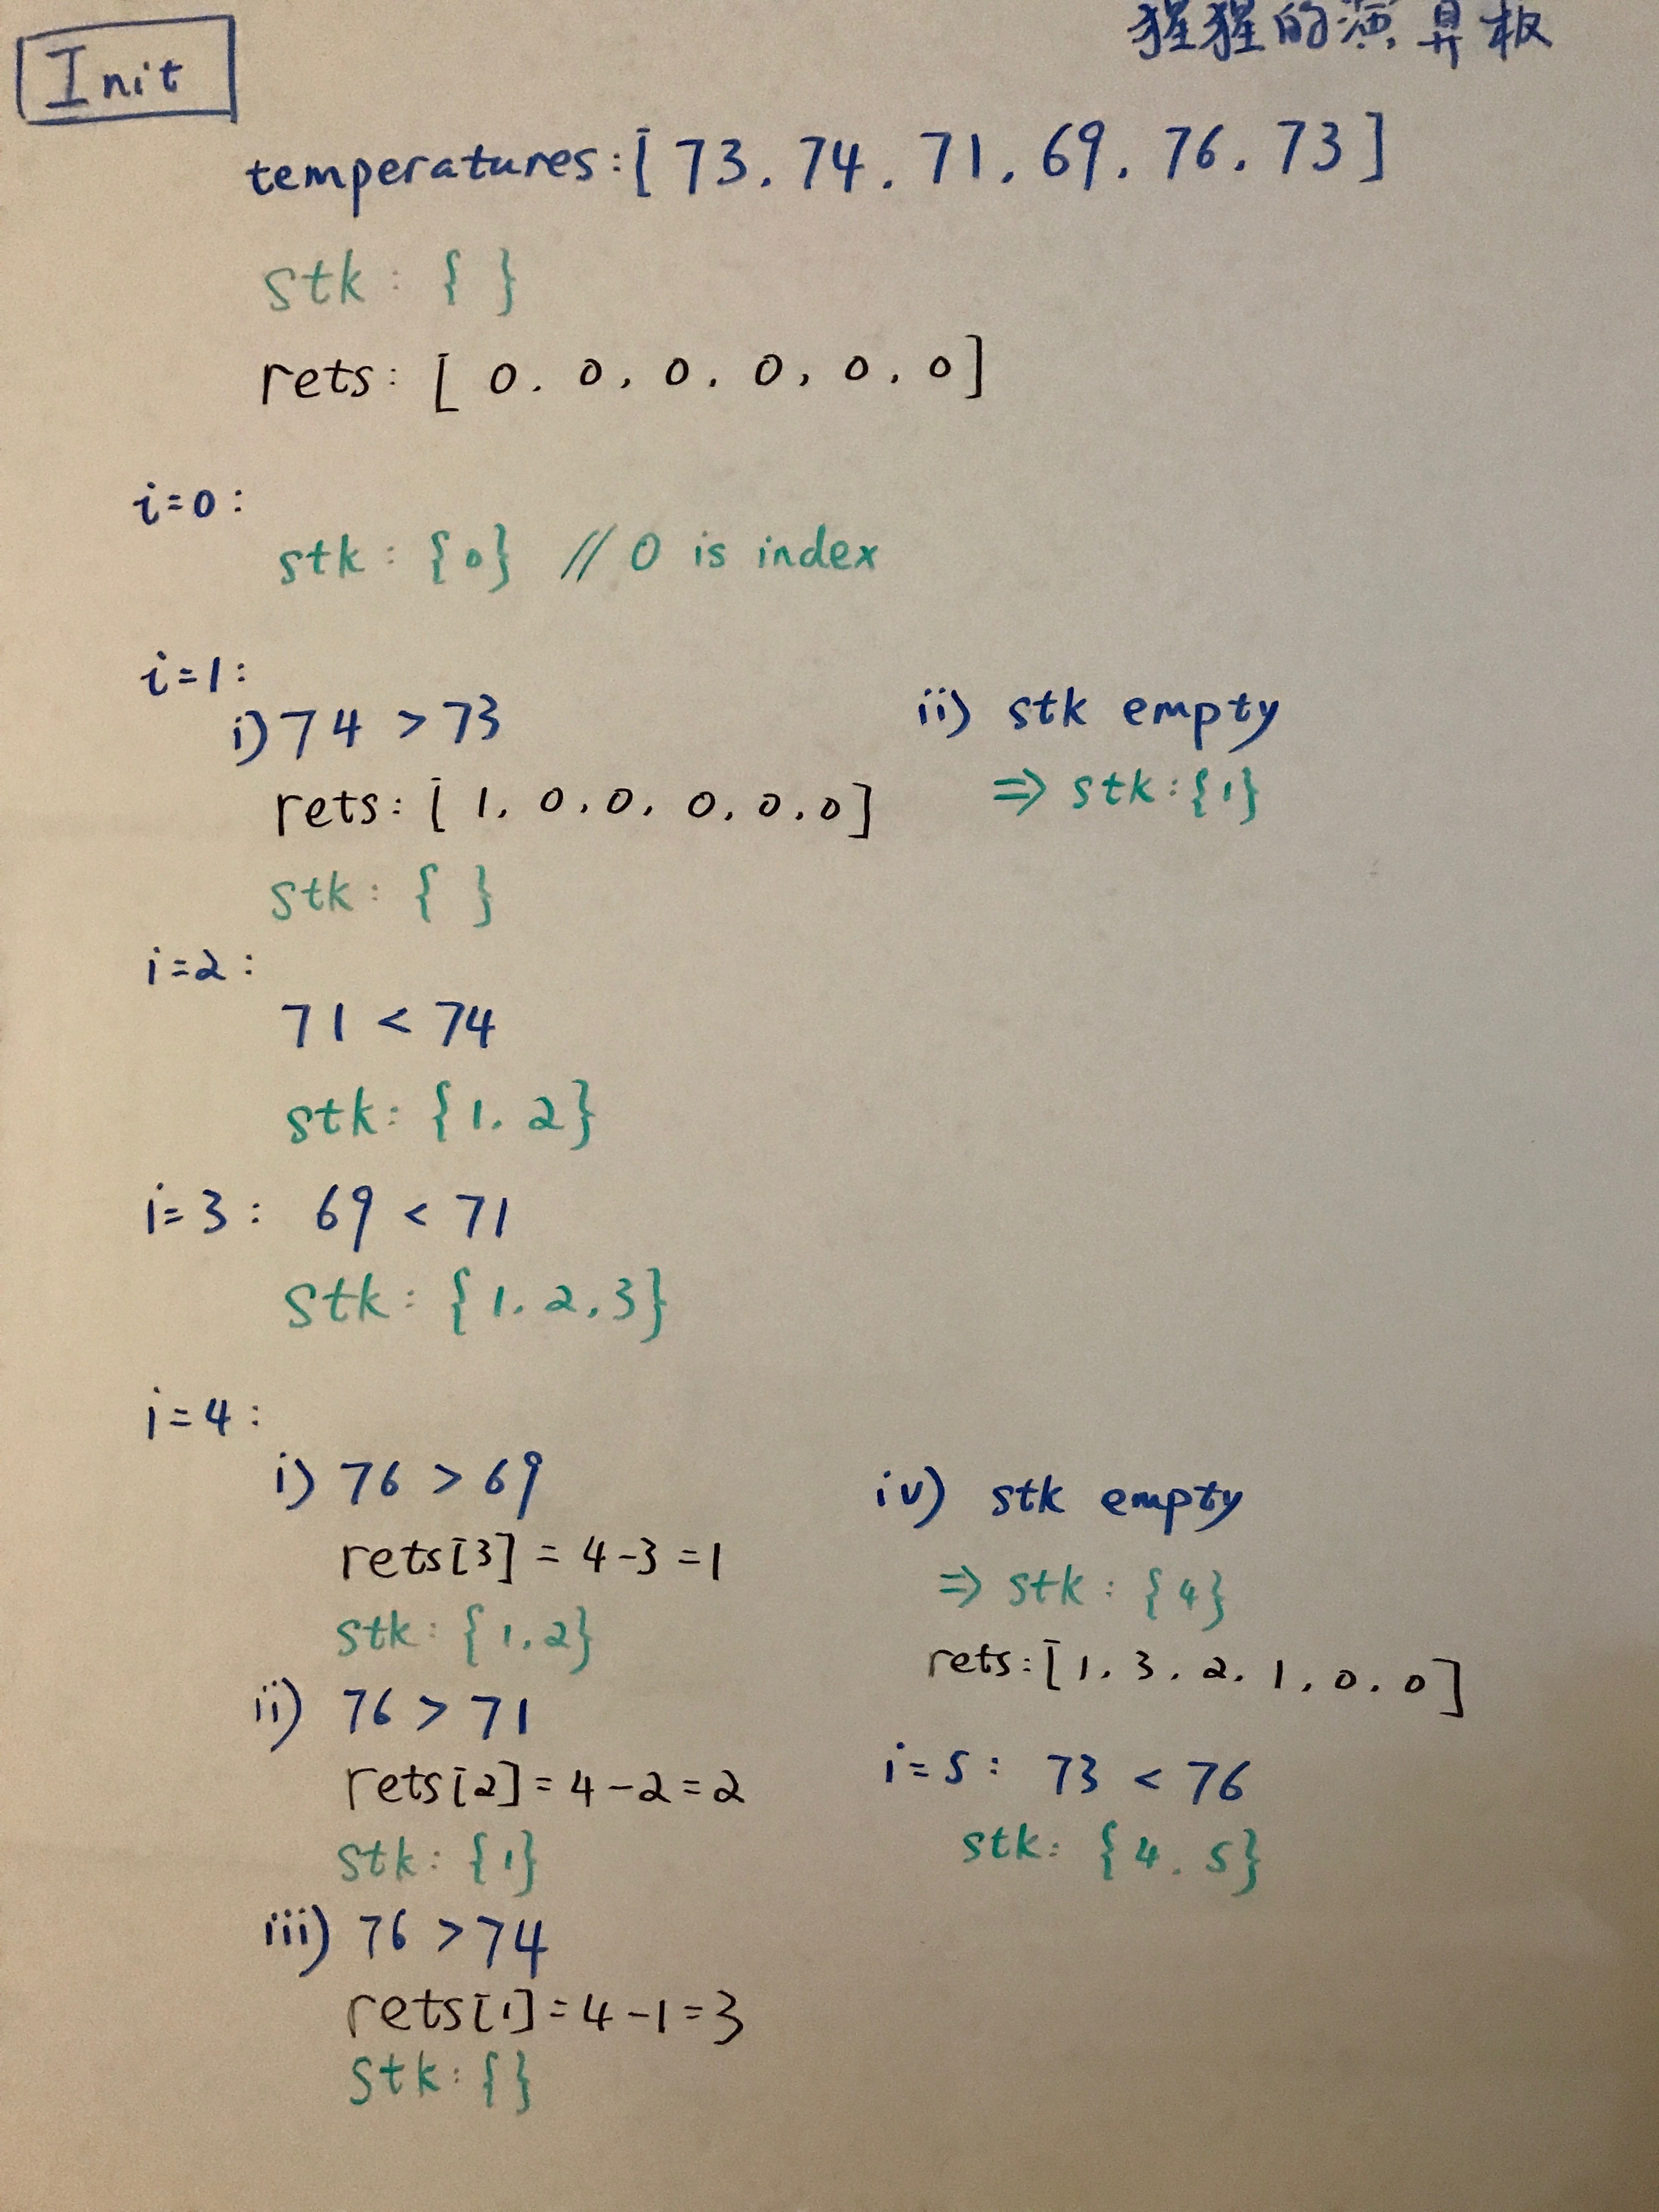 猩猩的演算板
Init
temperatures: [73, 74, 71, 69, 76, 73]
stk: { }
rets: [0, 0, 0, 0, 0, 0]
i=0:
stk: {0} // 0 is index
i=1:
i) 74 > 73
rets: [1, 0, 0, 0, 0, 0]
stk: { }
ii) stk empty
=> stk: {1}
i=2:
71 < 74
stk: {1, 2}
i=3: 69 < 71
stk: {1, 2, 3}
i=4:
i) 76 > 69
rets[3] = 4-3 = 1
stk: {1, 2}
ii) 76 > 71
rets[2] = 4-2 = 2
stk: {1}
iii) 76 > 74
rets[1] = 4-1 = 3
stk: {}
iv) stk empty
=> stk: {4}
rets: [1, 3, 2, 1, 0, 0]
i=5: 73 < 76
stk: {4, 5}